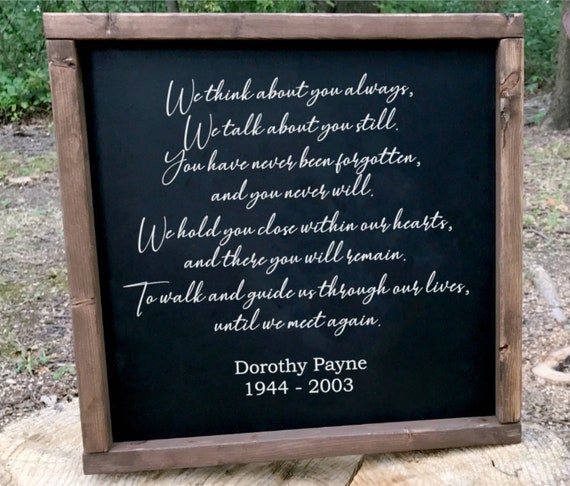 We think about you always,
We talk about you still.
You have never been forgotten,
and you never will.
We hold you close within our hearts,
and there you will remain.
To walk and guide us through our lives,
until we meet again.
Dorothy Payne
1944 - 2003